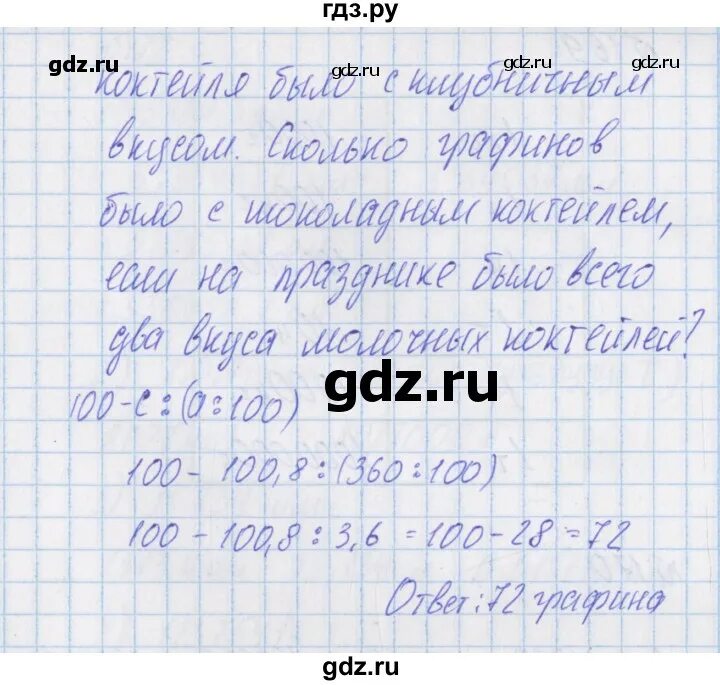 гдз.ру
gdz.ru gdz.ru gdz.ru
коктейля было с клубничным
вкусом. Сколько графинов
было с шоколадным коктейлем,
если на празднике было всего
два вкуса молочных коктейлей?
gdz.ru
100-с:(а:100)
100-100,8:(360:100)
100-100,8:3,6=100-28=72
Ответ:72 графина
gdz.ru gdz.ru
gdz.ru